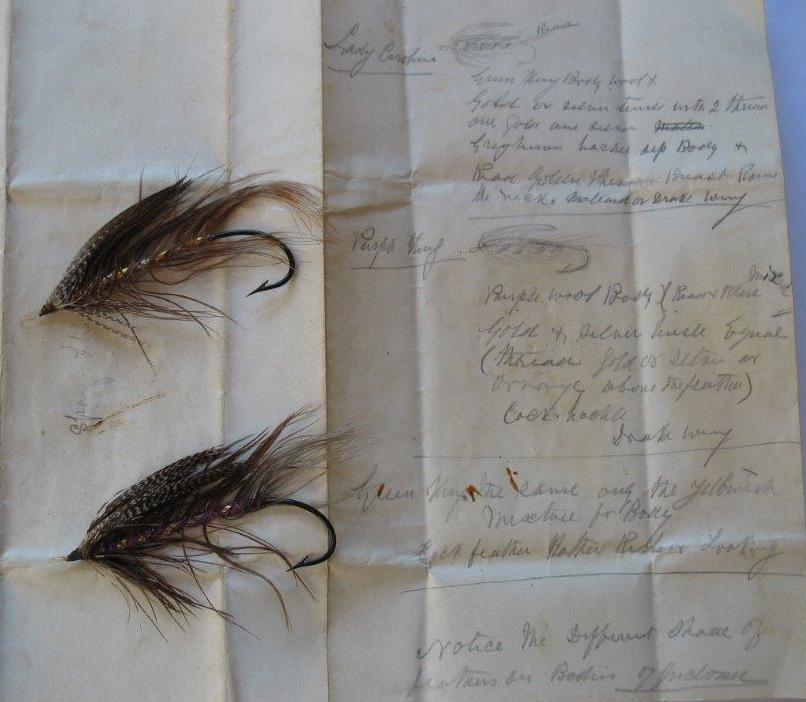 Lady Caroline
Green King Body wool &
Gold or silver tinsel with 2 threads
one gold one silver
Greyheron hackle up Body &
Read Golden Breast Round
the neck. Mallard or Drake wing
Purple King
Mixed
Purple Wool Body (Read & Blue
Gold & Silver tinsle Equal
(thread gold or silver or
orange above the feather)
Cock hackle
Drake wing
Green King the same only the Yellowish
Mixture for Body
Cock feather Rather Looking
Notice the Different Shade of
feathers on Bodies
Spey